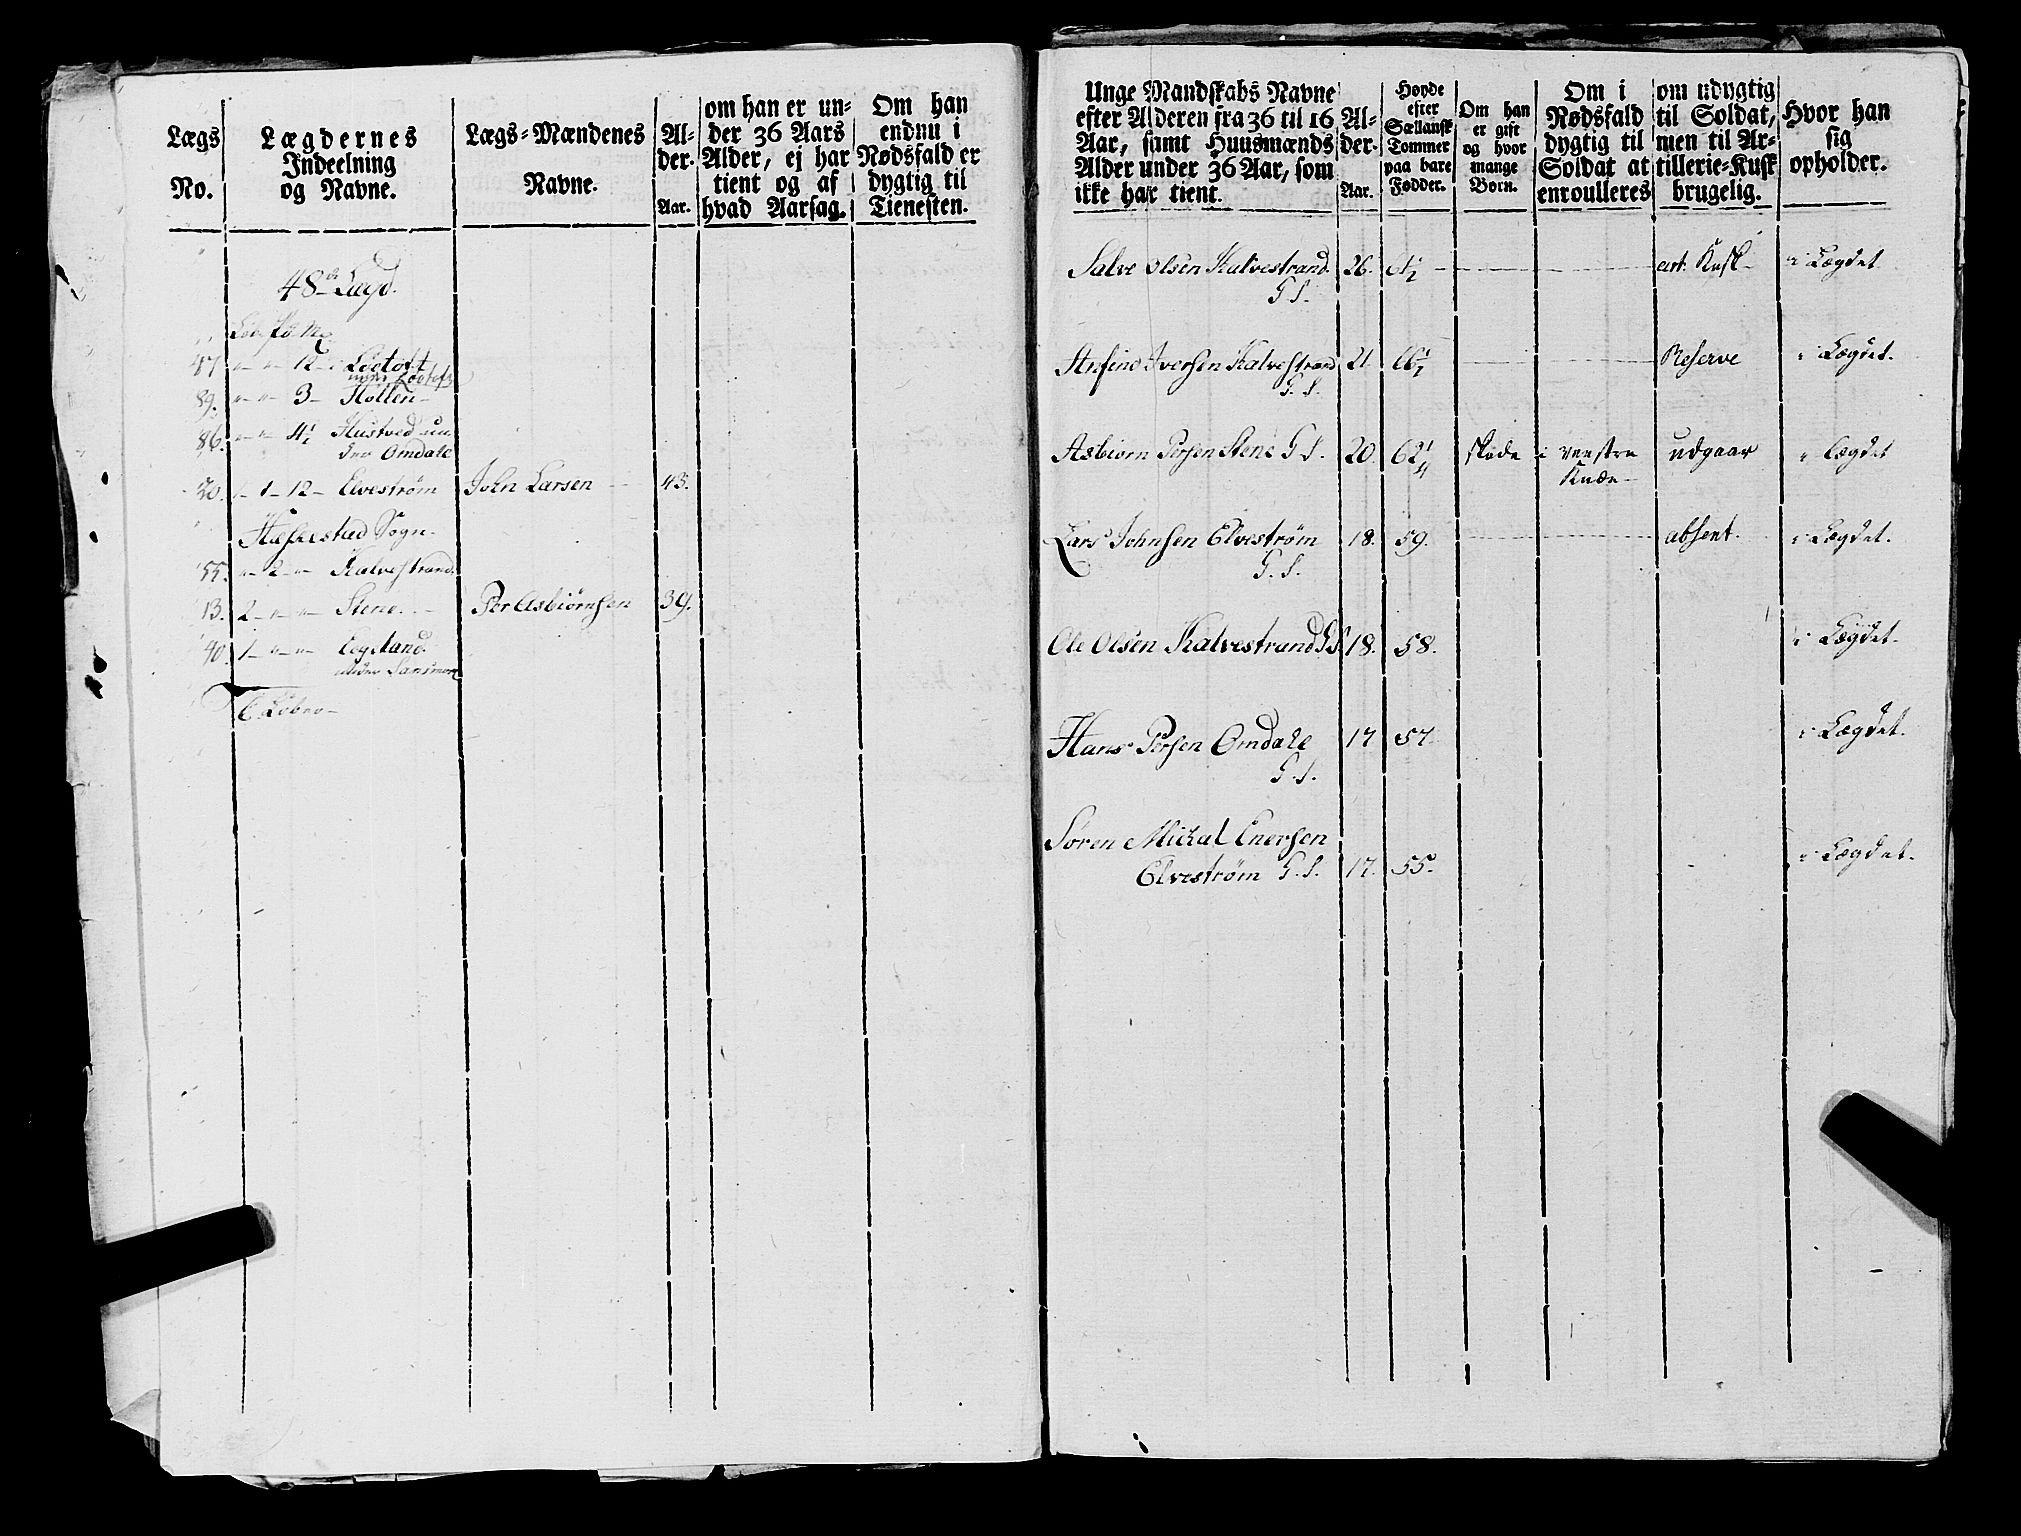 Lægs
No.
Lægdernes
Indeelning
og Navne.
Lægs-Mændenes
Navne.
Al-
der.
Aar.
om han er un-
der 36 Aars
Alder, ej har
tient og af
hvad Aarsag.
Om han
endnu i
Nødsfald er
dygtig til
Tienesten.
48de Lægd.
47 " " 12 Løetoft
89. " " 3 Hollen
under Løetoft
86. " " 4½ Hustved un-
der Omdale
20. 1 12 Elveström John Larsen 43.
Hæsnestad Sogn.
55. " 2 " Kalvestrand.
13. 2 " " Stene. Per Asbiörnsen 39.
40. 1 " " Egeland
under
Unge Mandskabs Navne
efter Alderen fra 36 til 16
Aar, samt Huusmænds
Alder under 36 Aar, som
ikke har tient.
Al-
der.
Aar.
Høyde
efter
Sællansk
Tommer
paa bare
Fødder.
Om han
er gift
og hvor
mange
Børn.
Om i
Nødsfald
dygtig til
Soldat at
enroulleres
om udygtig
til Soldat,
men til Ar-
tillerie-Kusk
brugelig.
Hvor han
sig
opholder.
Salve Olsen Kalvestrand. 26. 61½ art. Kusk i Lægdet.
G. S.
Anfind Iversen Kalvestrand 21 66½ Reserve i Lægdet.
G. S.
Asbiörn Persen Stene G. S. 20. 62¼ skade i venstre udgaar i Lægdet
Knæe
Lars Johnsen Elveström 18. 59. absent. i Lægdet.
G. S.
Ole Olsen Kalvestrand G. S. 18. 58. i Lægdet.
Hans Persen Omdale 17 57. i Lægdet.
G. S.
Sören Mickal Enersen
Elveström G. S. 17. 55. i Lægdet.